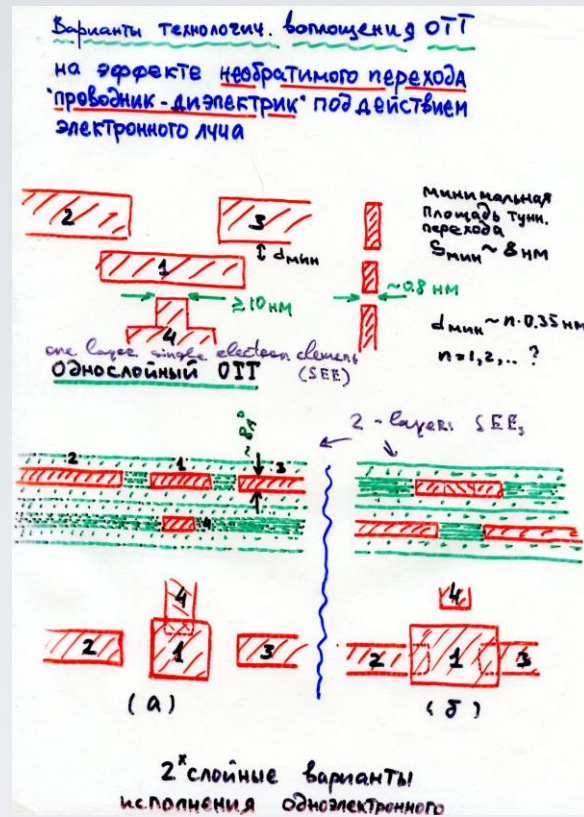 Варианты технологич. воплощения ОТТ
на эффекте необратимого перехода
"проводник-диэлектрик" под действием
электронного луча
2
3
dмин
1
минимальная
площадь тунн.
перехода
Sмин ~ 8 нм
≥10 нм
~0.8 нм
4
dмин ~ n·0.35 нм
n = 1, 2, .. ?
one layer single electron element
(SEE)
Однослойный ОТТ
2 - layers SEEs
~8Å
2
1
3
4
4
4
2
1
3
2
1
3
(а)
(б)
2х слойные варианты
исполнения одноэлектронного